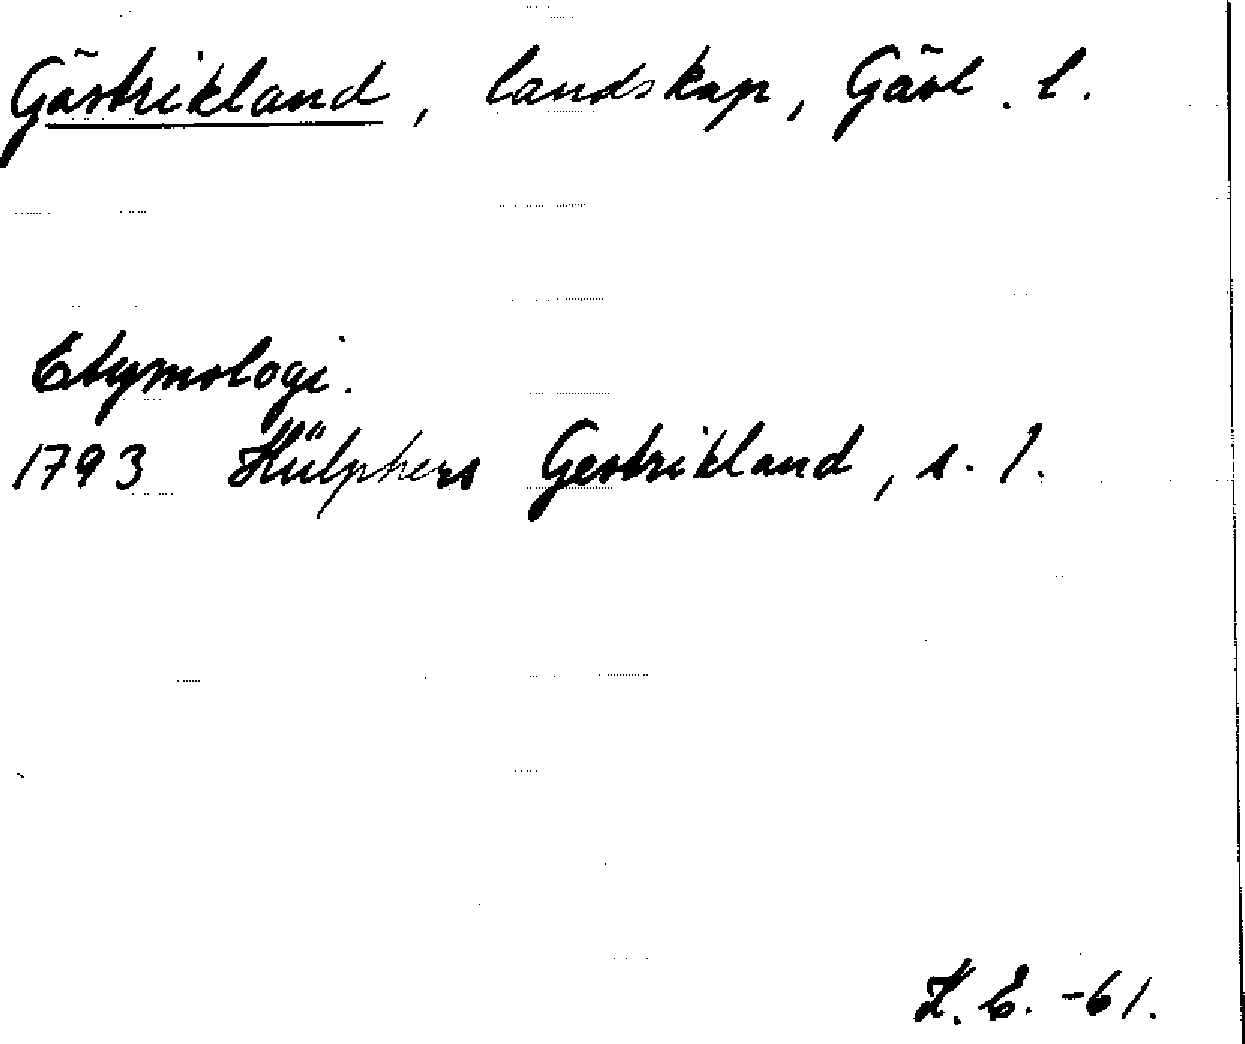 Gästrikland, landskap, Gävl. l.
Etymologi.
1793 Hülphers Gestrikland, s. 1.
K. E. -61.